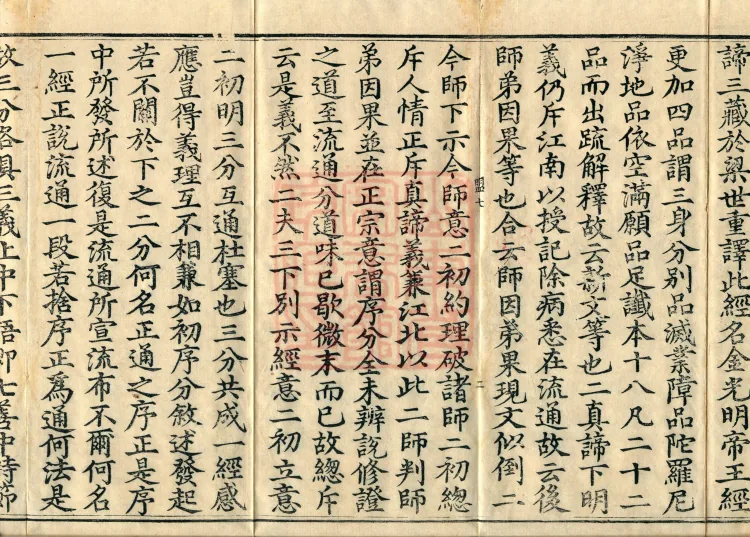 諦三藏於梁世重譯此經名金光明帝王經
更加四品謂三身分別品滅業障品陀羅尼
淨地品依空滿願品足讖本十八凡二十二
品而出疏解釋故云新文等也二真諦下明
義仍斥江南以授記除病悉在流通故云後
師弟因果等也合云師因弟果現文似倒二
盟七
二
今師下示今師意二初約理破諸師二初總
斥人情正斥真諦義兼江北以此二師判師
弟因果並在正宗意謂序分全未辨說修證
之道至流通分道味已歇微末而已故總斥
云是義不然二夫三下別示經意二初立意
二初明三分互通杜塞也三分共成一經感
應豈得義理互不相兼如初序分敘述發起
若不關於下之二分何名正通之序正是序
中所發所述復是流通所宣流布不爾何名
一經正說流通一段若捨序正為通何法是
故三分各具三義上中下語即七善中時節